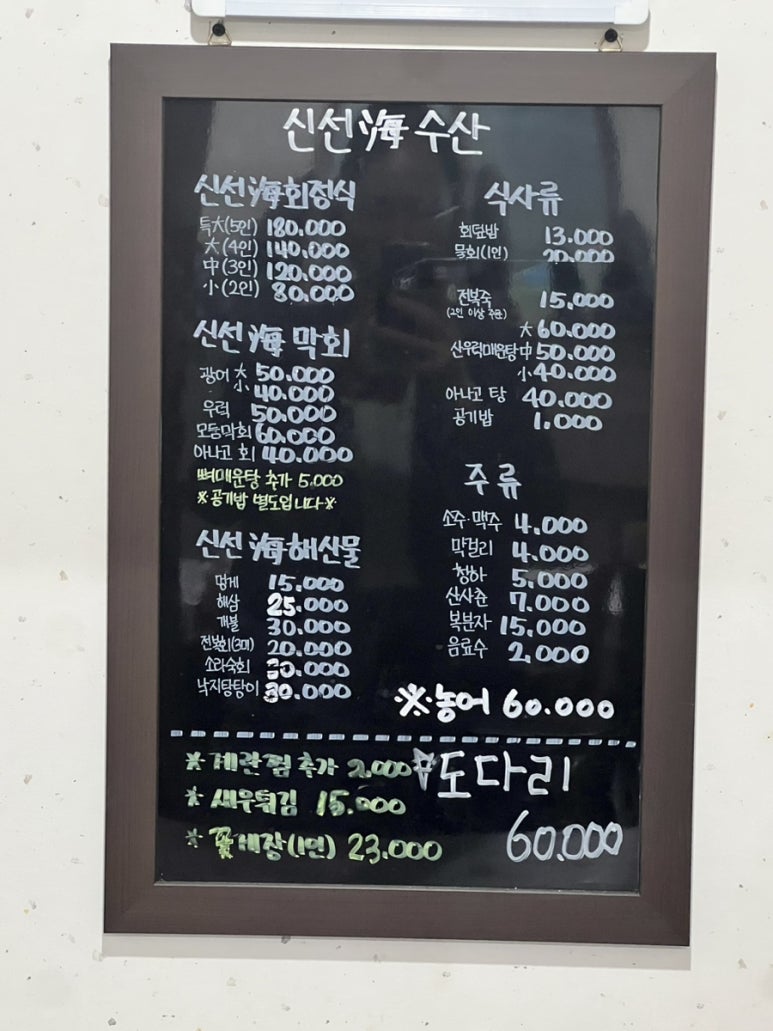 신선海수산
신선海회정식
특大(5인) 180.000
大(4인) 140.000
中(3인) 120.000
小(2인) 80.000
신선海막회
광어 大 50.000
小 40.000
우럭 50.000
모듬막회 60.000
아나고 회 40.000
뼈매운탕 추가 5.000
※공기밥 별도입니다※
신선海해산물
멍게 15.000
해삼 25.000
개불 30.000
전복회(3미) 20.000
소라숙회 30.000
낙지탕탕이 30.000
식사류
회덮밥 13.000
물회(1인) 20.000
전복죽 15.000
(2인 이상 주문)
大 60.000
산우럭매운탕 中 50.000
小 40.000
아나고 탕 40.000
공기밥 1.000
주류
소주·맥주 4.000
막걸리 4.000
청하 5.000
산사춘 7.000
복분자 15.000
음료수 2.000
※농어 60.000
※계란찜 추가 2.000
※새우튀김 15.000
※꽃게장(1인) 23.000
☆도다리
60.000